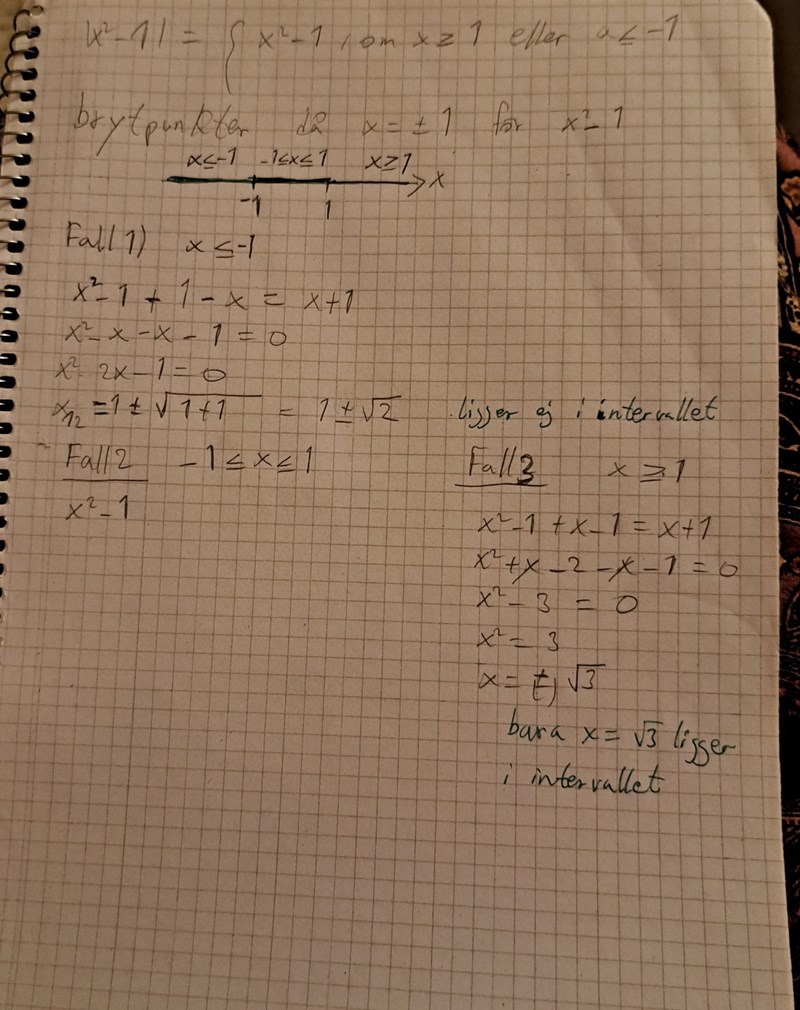 |x²-1| = { x²-1, om x ≥ 1 eller a ≤ -1
brytpunkter då x = ±1 för x²-1
x≤-1 -1≤x≤1 x≥1
-1 1 x
Fall 1) x ≤ -1
x²-1 + 1 - x = x+1
x²-x-x-1 = 0
x² 2x-1 = 0
x₁₂ = 1 ± √1+1 = 1±√2 ligger ej i intervallet
Fall 2 -1 ≤ x ≤ 1
x²-1
Fall 3 x ≥ 1
x²-1 + x-1 = x+1
x²+x-2-x-1 = 0
x²-3 = 0
x² = 3
x = (±) √3
bara x = √3 ligger
i intervallet